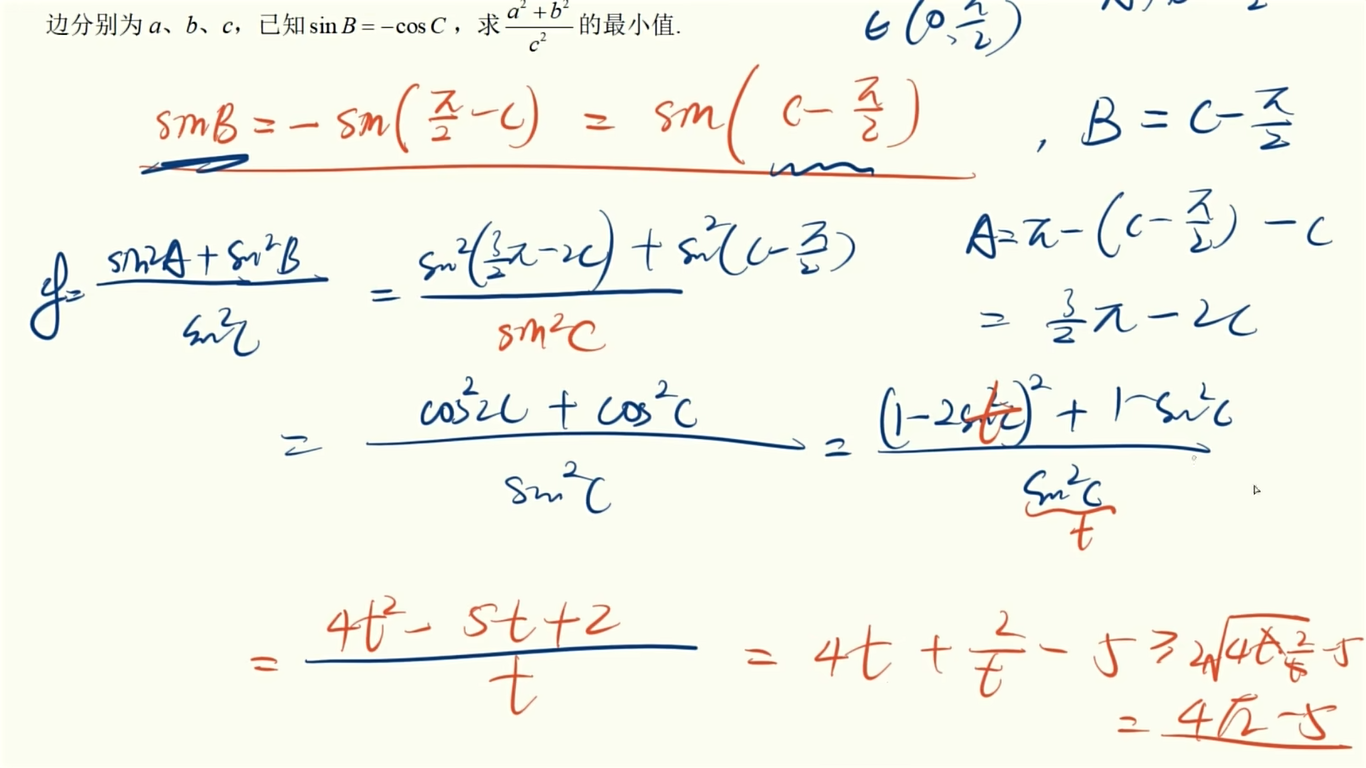 边分别为 a、b、c，已知 sin B = −cos C ，求 (a² + b²)/c² 的最小值.
∈(0, π/2)
sinB = − sin(π/2 − C) = sin(C − π/2) , B = C − π/2
y = (sin²A + sin²B)/sin²C = (sin²(3/2 π − 2C) + sin²(C − π/2))/sin²C
A = π − (C − π/2) − C
= 3/2 π − 2C
= (cos²2C + cos²C)/sin²C = ((1 − 2t)² + 1 − sin²C)/sin²C
t
= (4t² − 5t + 2)/t = 4t + 2/t − 5 ≥ 2√(4t·2/t) − 5
= 4√2 − 5